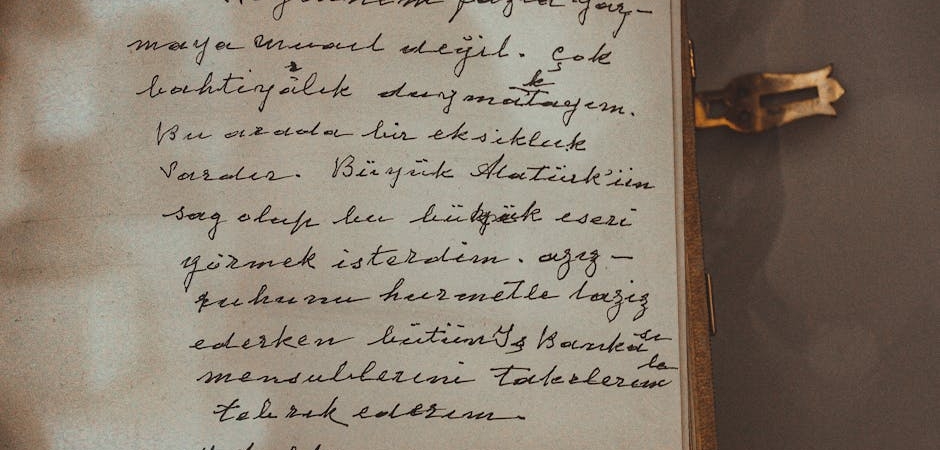 fazla yaz-
maya muail değil. Çok
bahtiyârlık duymaktayım.
Bu arada bir eksikluk
Vardır. Büyük Atatürk'ün
sag olup bu büyük eseri
görmek isterdim. aziz-
ruhunu hurmetle taziz
ederken bütün İş Bankası
mensublerini takdirlerimle
tebrik ederim.